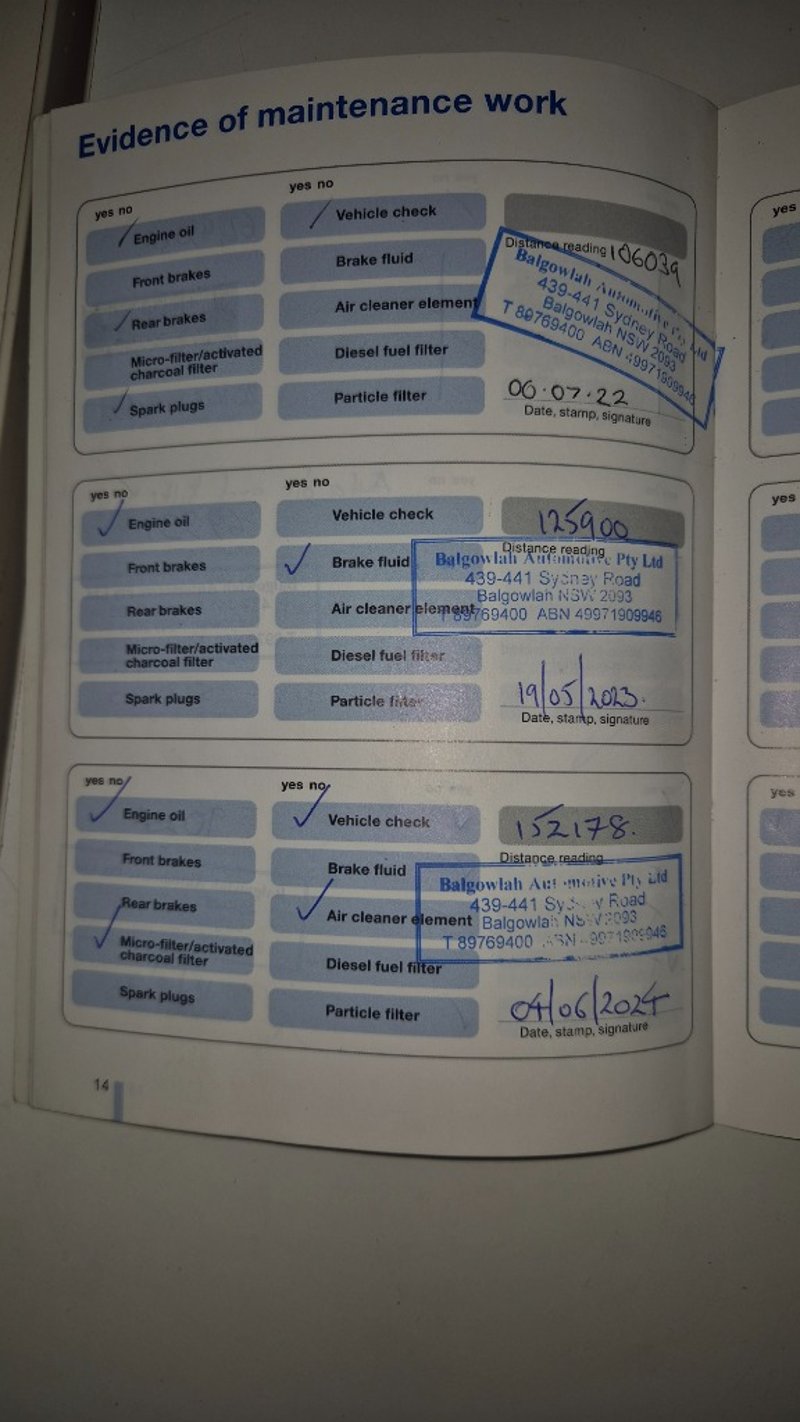 Evidence of maintenance work
yes no
yes no
Engine oil
Vehicle check
Front brakes
Brake fluid
Rear brakes
Air cleaner element
Micro-filter/activated
charcoal filter
Diesel fuel filter
Spark plugs
Particle filter
Distance reading 106039
Balgowlah Automotive Pty Ltd
439-441 Sydney Road
Balgowlah NSW 2093
T 89769400 ABN 49971909946
06.07.22
Date, stamp, signature
yes no
yes no
Engine oil
Vehicle check
Front brakes
Brake fluid
Rear brakes
Air cleaner element
Micro-filter/activated
charcoal filter
Diesel fuel filter
Spark plugs
Particle filter
125900
Distance reading
Balgowlah Automotive Pty Ltd
439-441 Sydney Road
Balgowlah NSW 2093
T 89769400 ABN 49971909946
19/05/2023.
Date, stamp, signature
yes no
yes no
Engine oil
Vehicle check
Front brakes
Brake fluid
Rear brakes
Air cleaner element
Micro-filter/activated
charcoal filter
Diesel fuel filter
Spark plugs
Particle filter
152178.
Distance reading
Balgowlah Automotive Pty Ltd
439-441 Sydney Road
Balgowlah NSW 2093
T 89769400 ABN 49971909946
04/06/2024
Date, stamp, signature
14
yes
yes
yes